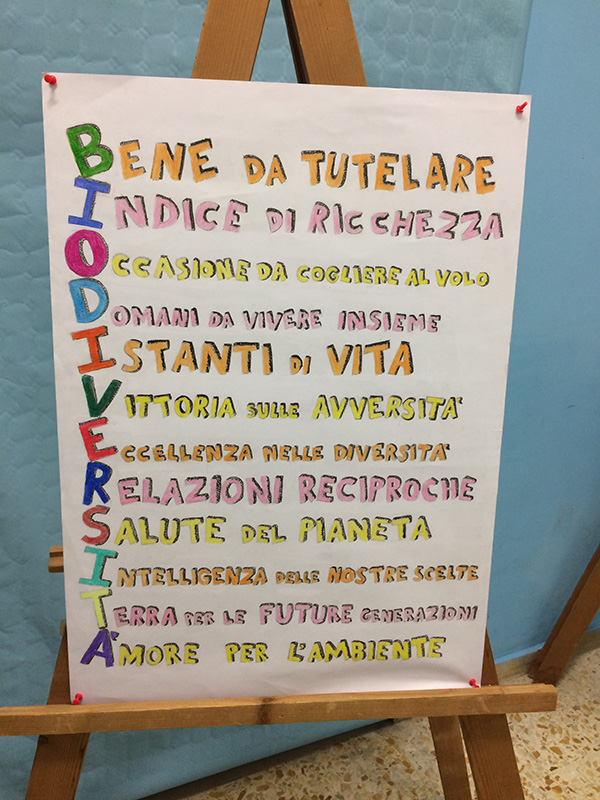 BENE DA TUTELARE
INDICE DI RICCHEZZA
OCCASIONE DA COGLIERE AL VOLO
DOMANI DA VIVERE INSIEME
ISTANTI DI VITA
VITTORIA SULLE AVVERSITA'
ECCELLENZA NELLE DIVERSITA'
RELAZIONI RECIPROCHE
SALUTE DEL PIANETA
INTELLIGENZA DELLE NOSTRE SCELTE
TERRA PER LE FUTURE GENERAZIONI
À MORE PER L'AMBIENTE